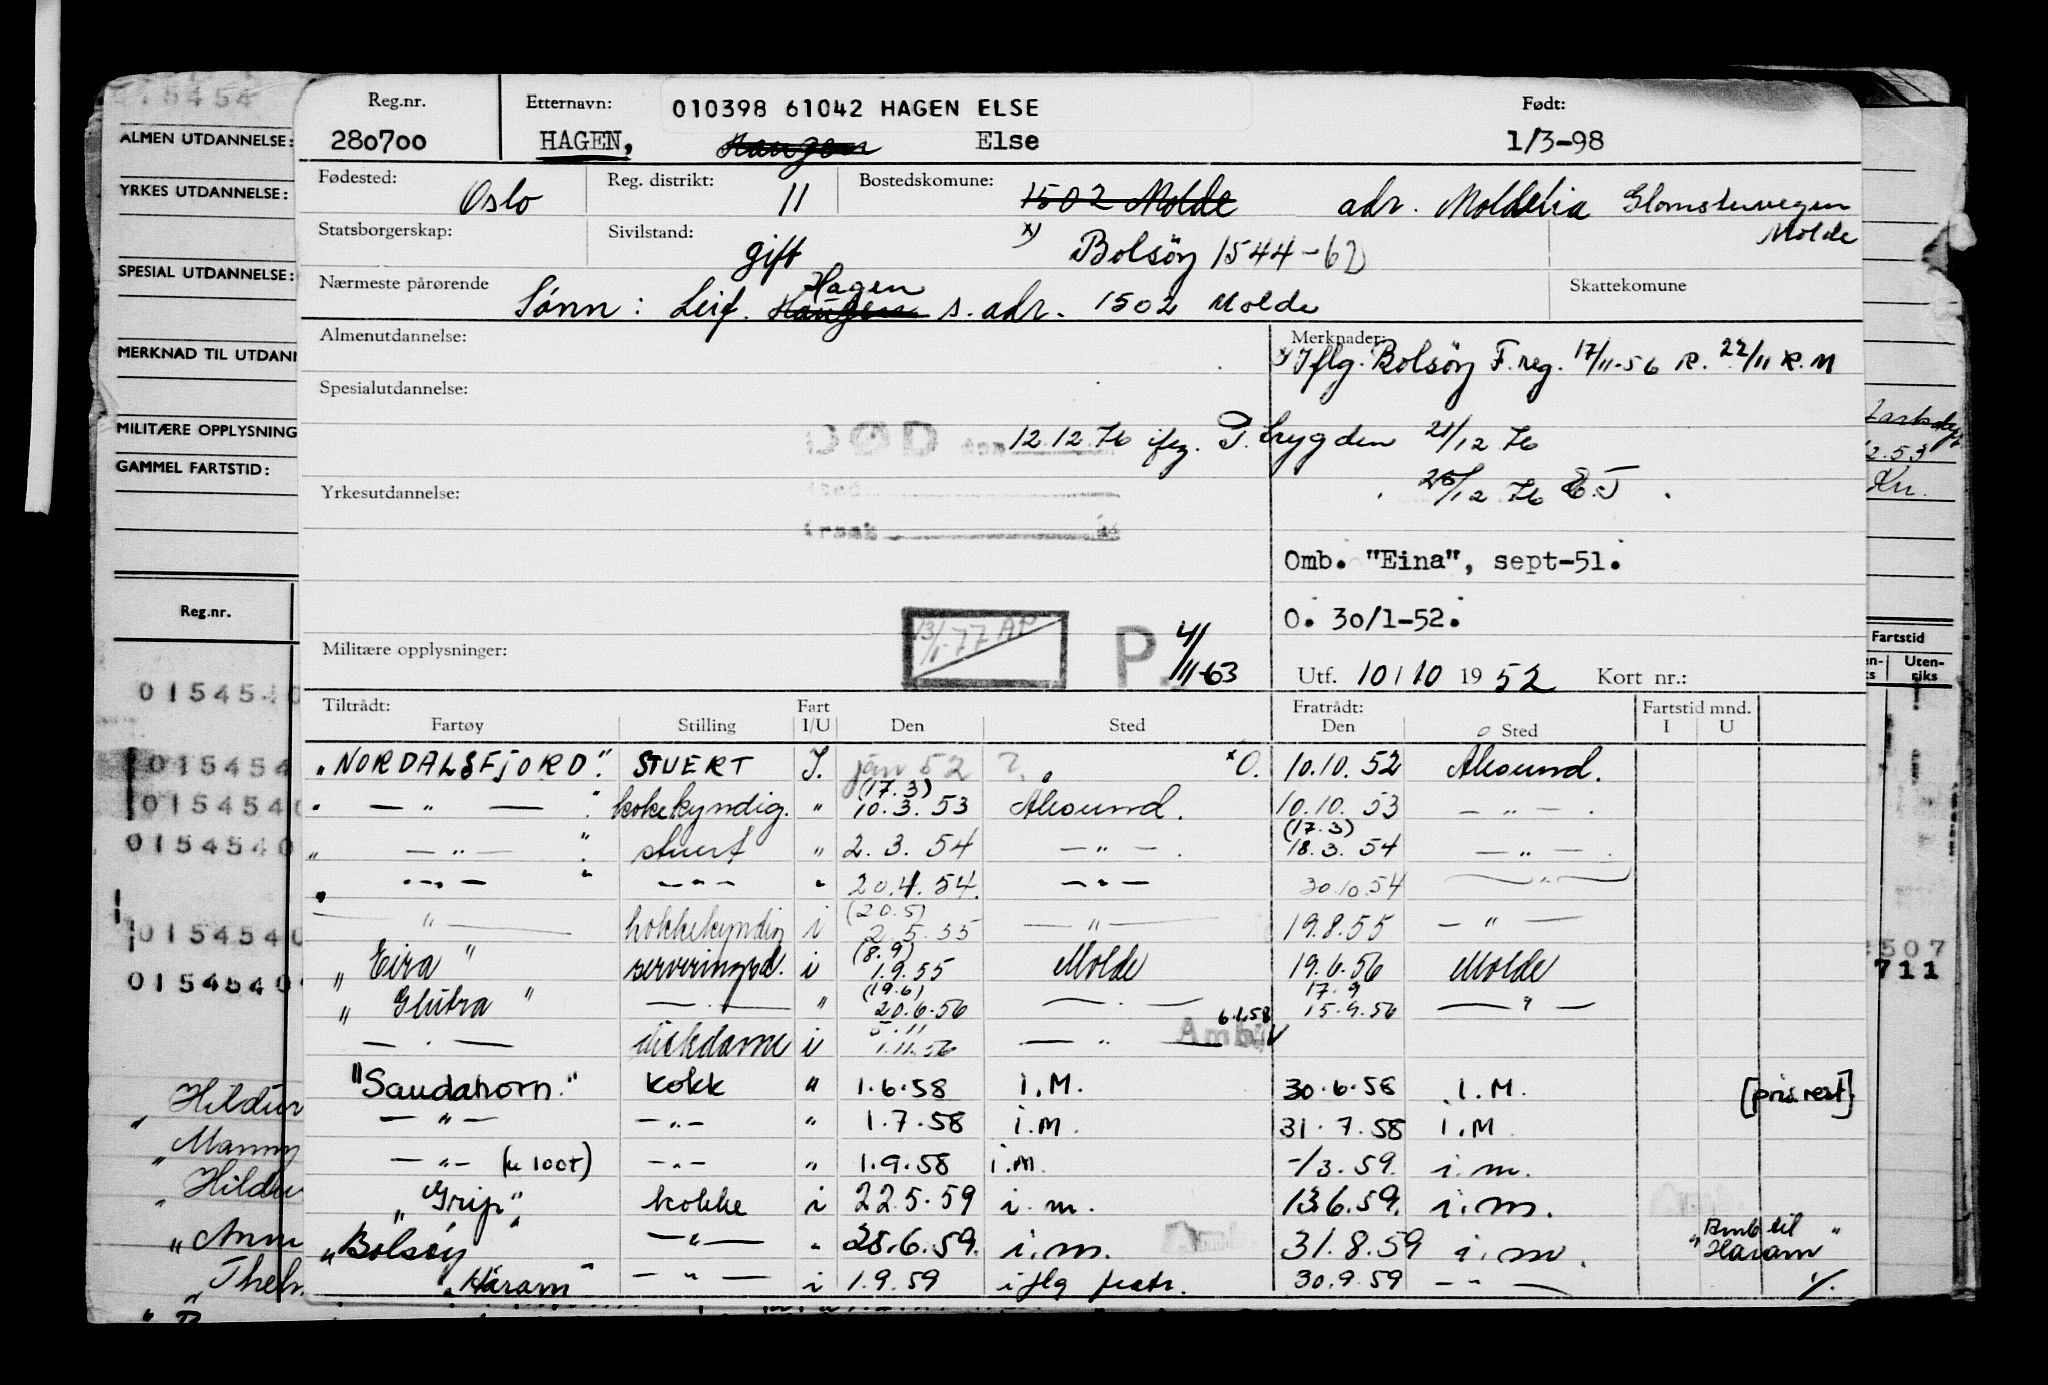 Reg.nr. Etternavn: 010398 61042 HAGEN ELSE Født:
280700 HAGEN, Else 1/3-98
Fødested: Oslo Reg. distrikt: 11 Bostedskomune: 1502 Molde adr. Moldelia Glomstuvegen Molde
Statsborgerskap: Sivilstand: gift x) Bolsöy 1544-62
Nærmeste pårørende Sønn: Leif. Hagen s. adr. 1502 Molde Skattekomune
Almenutdannelse: Merknader:
x) Iflg. Bolsöy F.reg. 17/11-56 R. 22/11 R.M
Spesialutdannelse:
DØD den 12.12.76 ifg. T.trygden 21/12 76
Yrkesutdannelse: 28/12 76 E.J
Omb. "Eina", sept-51.
O. 30/1-52.
13/1-77 AP P. 4/11-63
Militære opplysninger: Utf. 10/10 1952 Kort nr.:
Tiltrådt: Fart Fratrådt: Fartstid mnd.
Fartøy Stilling I/U Den Sted Den Sted I U
"NORDALSFJORD". STUERT I. jan 52 ? *O. 10.10.52 Ålesund.
" — " — " kokekyndig. " (17.3) 10.3.53 Ålesund. 10.10.53 — " — .
" — " — " stuert " 2.3.54 — " — . (17.3) 18.3.54 — " — .
" — " — " — " — " 20.4.54. — " — 30.10.54 — " —
— " — kokkekyndig i (20.5) 2.5.55 — " — 19.8.55 — " —
"Eira" serveringsd. i (8.9) 1.9.55 Molde 19.6.56 Molde
"Glutra" — . — " (19.6) 20.6.56 — . — 17.9 15.9.56 — " —
— . — diskdame i 5.11 1.11.56 — " — Amb 6.1.58
"Saudahorn." kokk " 1.6.58 i.M. 30.6.58 i.M. [pris.rest]
— " — — " — " 1.7.58 i.M. 31.7.58 i.M.
— " — (u 100T) — " — " 1.9.58 i.M. -/3.59. i.m.
"Grip" kokke i 22.5.59 i.m. 13.6.59. i.m.
"Bolsøy" — " — " 28.6.59. i.m. Amb. 31.8.59 i.m. "Amb til Haram"
"Haram" — " — i 1.9.59 iflg fratr. 30.9.59 — " — ./.
ALMEN UTDANNELSE:
YRKES UTDANNELSE:
SPESIAL UTDANNELSE:
MERKNAD TIL UTDANN
MILITÆRE OPPLYSNING
GAMMEL FARTSTID:
Reg.nr.
015454
0154540
015454
0154540
0154540
0154540
0154540
Hildur
Manny
Hildu
Ann
Thelm
2.53
Kn.
Fartstid
Uten-
riks
2507
711